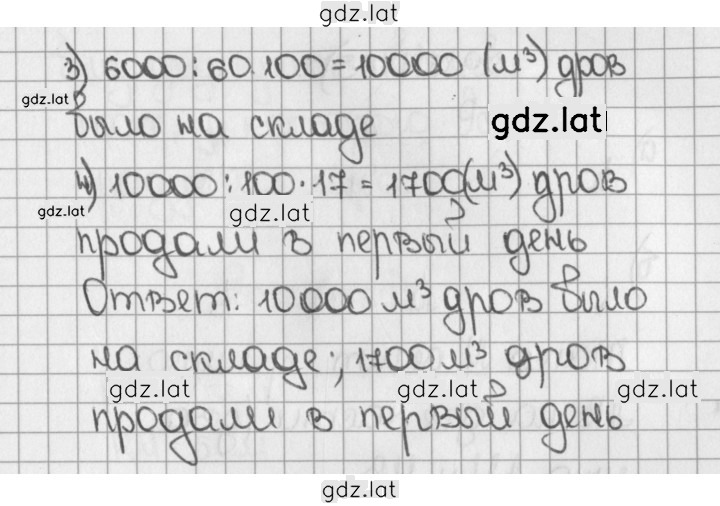 gdz.lat
3) 6000:60·100=10000 (м³) дров
gdz.lat
было на складе
gdz.lat
4) 10000:100·17=1700(м³) дров
gdz.lat
gdz.lat
продали в первый день
Ответ: 10000 м³ дров было
на складе; 1700 м³ дров
gdz.lat gdz.lat gdz.lat
продали в первый день
gdz.lat